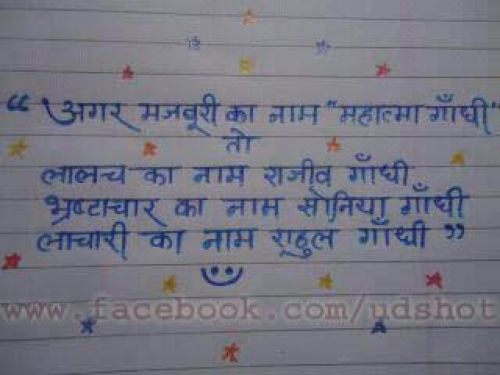 “ अगर मजबूरी का नाम "महात्मा गाँधी"
तो
लालच का नाम राजीव गाँधी
भ्रष्टाचार का नाम सोनिया गाँधी
लाचारी का नाम राहुल गाँधी ”
www.facebook.com/udshot